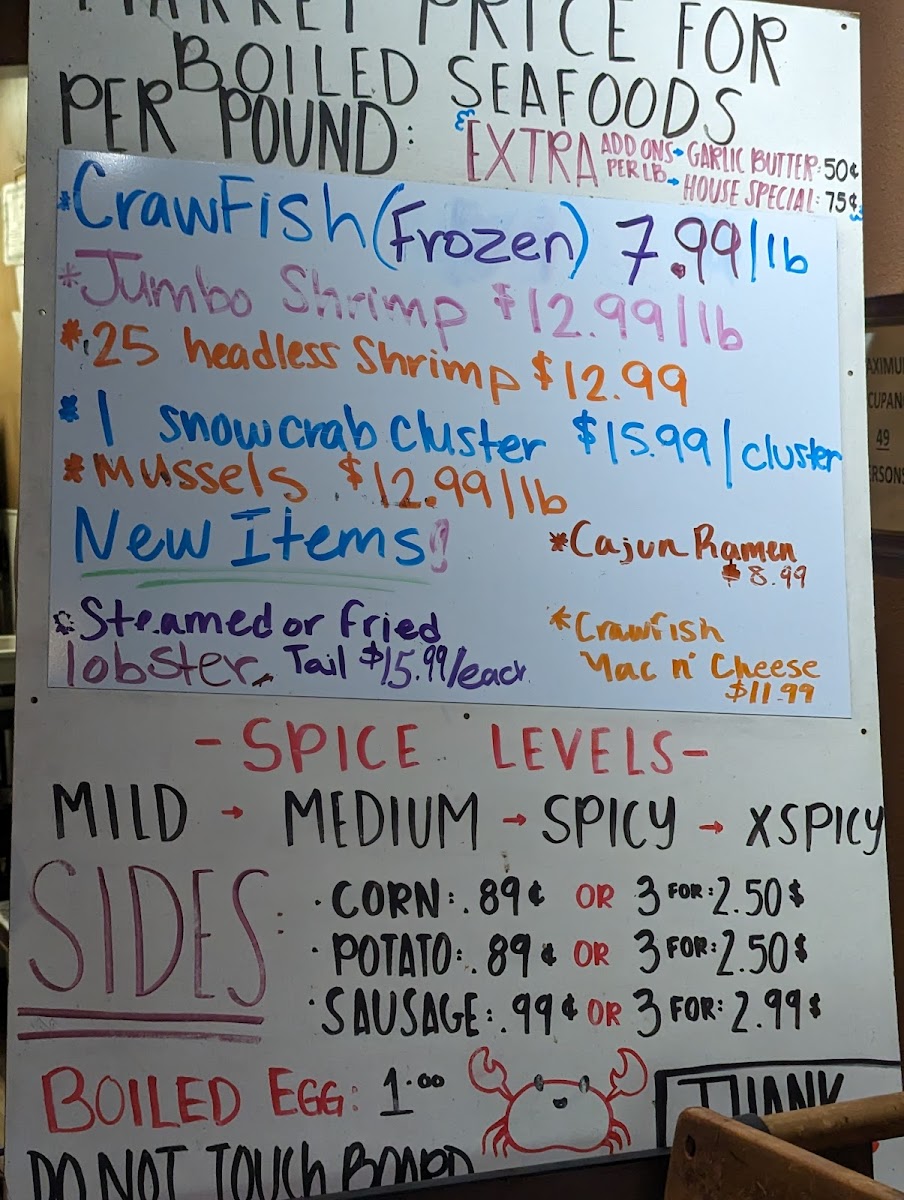 MARKET PRICE FOR
BOILED SEAFOODS
PER POUND:
EXTRA ADD ONS → GARLIC BUTTER: 50¢
PER LB → HOUSE SPECIAL: 75¢
*CrawFish (Frozen) 7.99/lb
*Jumbo Shrimp $12.99/lb
*.25 headless Shrimp $12.99
*1 snowcrab cluster $15.99/cluster
*Mussels $12.99/lb
New Items!
*Cajun Ramen
$8.99
*Steamed or fried
lobster Tail $15.99/each
*Crawfish
Mac n' Cheese
$11.99
-SPICE LEVELS-
MILD → MEDIUM → SPICY → XSPICY
SIDES
· CORN: .89¢ OR 3 FOR: 2.50$
· POTATO: .89¢ OR 3 FOR: 2.50$
· SAUSAGE: .99¢ OR 3 FOR: 2.99$
BOILED EGG: 1.00
THANK
DO NOT TOUCH BOARD
AXIMU
CUPAN
49
ERSONS